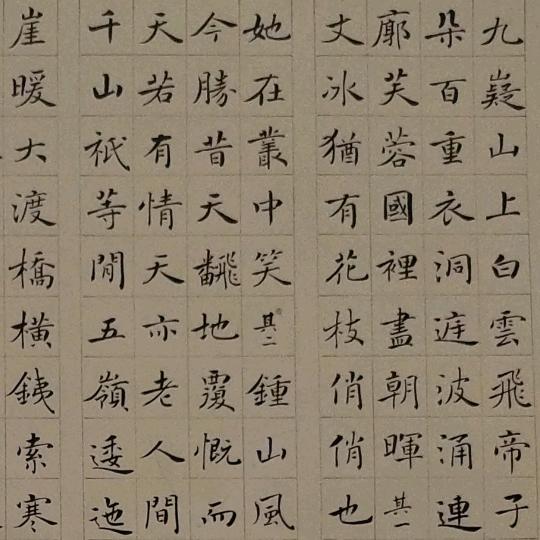 九嶷山上白雲飛帝子
朵百重衣洞庭波涌連
廓芙蓉國裡盡朝暉其一
丈冰猶有花枝俏俏也
她在叢中笑其二鍾山風
今勝昔天翻地覆慨而
天若有情天亦老人間
千山祇等閒五嶺逶迤
崖暖大渡橋橫銕索寒